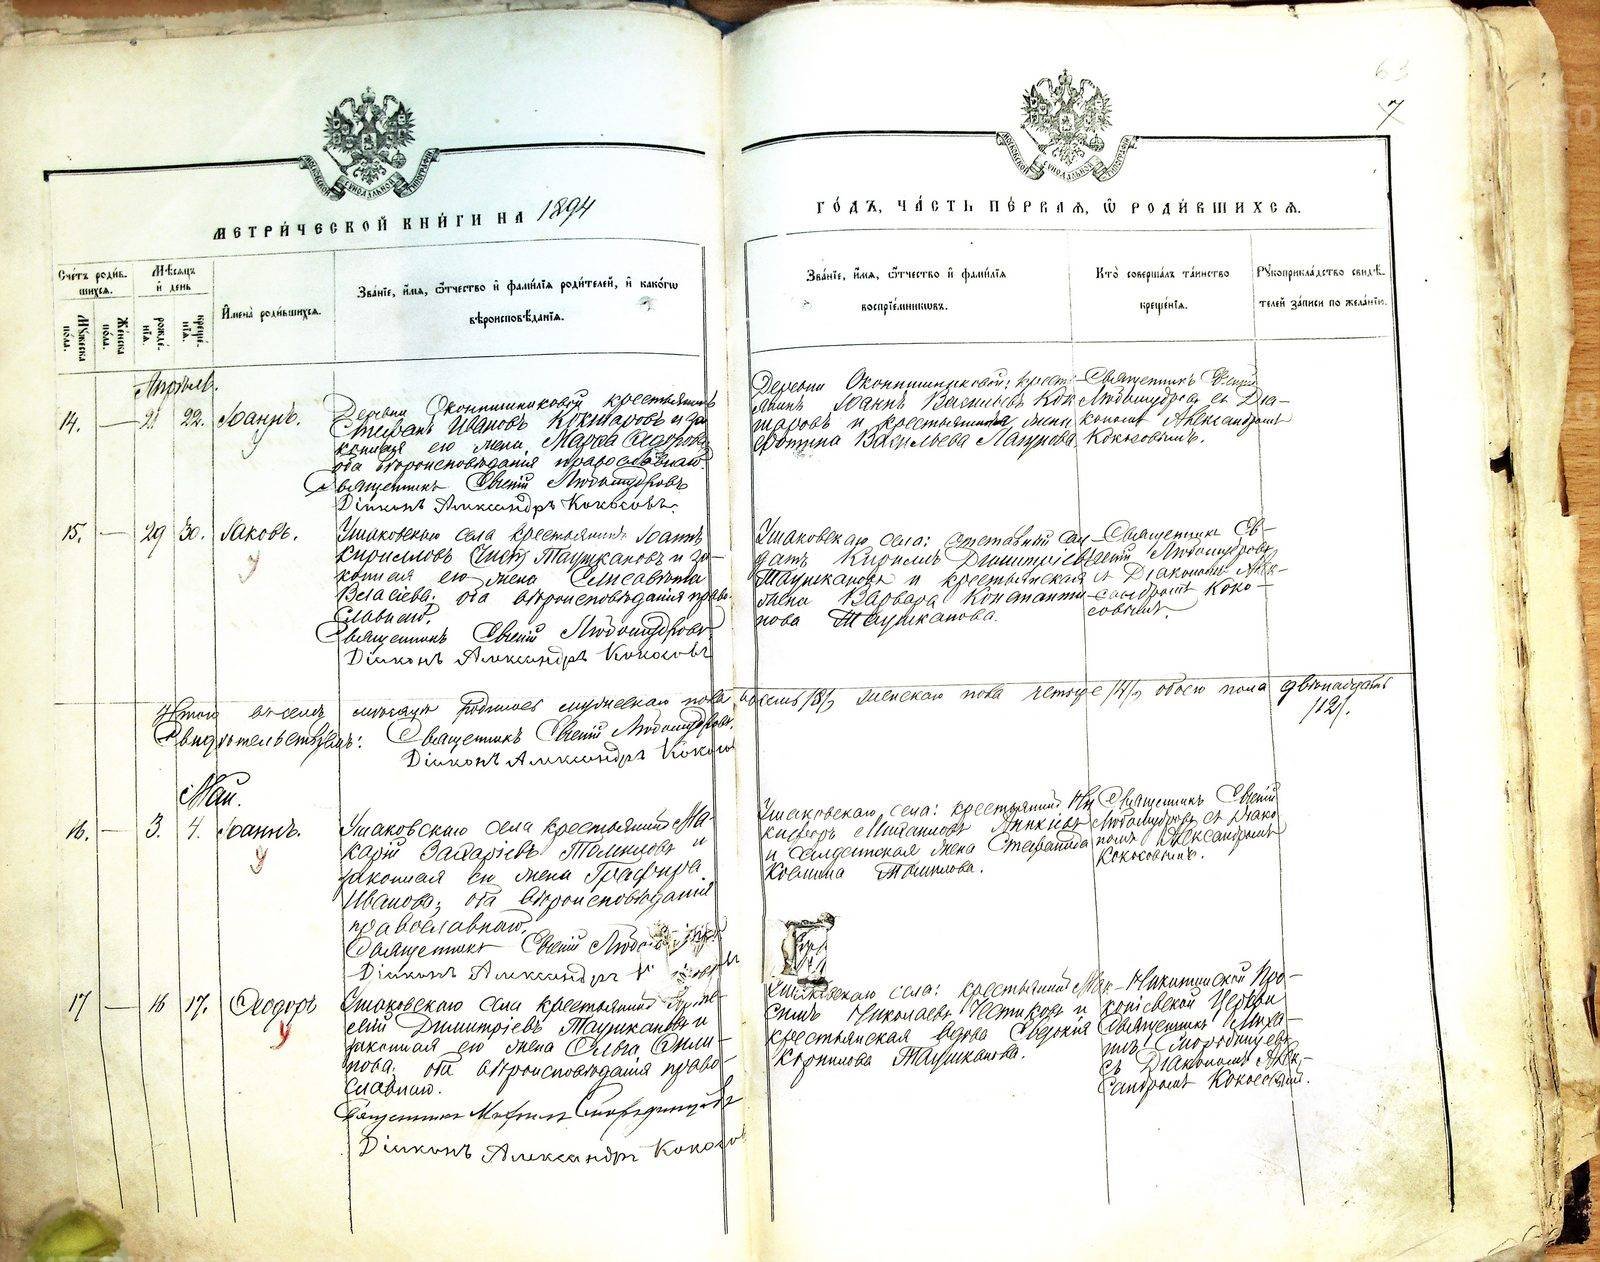 63
7
МОСКОВСКОЙ СѴНОДАЛЬНОЙ ТИПОГРАФІИ
МОСКОВСКОЙ СѴНОДАЛЬНОЙ ТИПОГРАФІИ
МЕТРИ́ЧЕСКОЙ КНИ́ГИ НА 1894
ГО́ДЪ, ЧА́СТЬ ПЕ́РВАЯ, Ѿ РОДИ́ВШИХСЯ.
Сче́тъ роди́в-
шихся.
Мѣсяцъ
и҆ день
Мꙋжеска по́ла.
Же́нска по́ла.
рожде́-
нїя.
креще́-
нїя.
И҆мена̀ роди́вшихся.
Зва́нїе, и҆́мя, ѻ҆́тчество и҆ фами́лїя роди́телей, и҆ како́гѡ
вѣроисповѣ́данїя.
Зва́нїе, и҆́мя, ѻ҆́тчество и҆ фами́лїя
воспрїе́мниковъ.
Кто̀ соверша́лъ та́инство
креще́нїя.
Рꙋкоприкла́дство свидѣ́-
телей за́писи по жела́нїю.
Апрѣль.
14. — 21 22. Іоаннъ.
Деревни Оконишниковой крестьянинъ
Стефанъ Ивановъ Кокшаровъ и за-
конная его жена Марѳа Ѳедорова,
оба вѣроисповѣданія православнаго.
Священникъ Евгеній Любомудровъ
Діаконъ Александръ Кокосовъ.
Деревни Оконишниковой: кресть-
янинъ Іоаннъ Васильевъ Кок-
шаровъ и крестьянская жена
Васильева
Священникъ Евгеній
Любомудровъ съ Діа-
кономъ Александромъ
Кокосовымъ.
15. — 29 30. Іаковъ.
Ушаковскаго села крестьянинъ Іоаннъ
Кирилловъ Таушкановъ и за-
конная его жена Елисавета
Власіева. оба вѣроисповѣданія право-
славнаго.
Священникъ Евгеній Любомудровъ
Діаконъ Александръ Кокосовъ
Ушаковскаго села: отставный сол-
датъ Кириллъ Димитріевъ
Таушкановъ и крестьянская
жена Варвара Константи-
нова Таушканова.
Священникъ Ев-
геній Любомудровъ
съ Діакономъ Алек-
сандромъ Коко-
совымъ.
Итого въ семъ мѣсяцѣ родилось мужескаго пола восемь /8/, женскаго пола четыре /4/, обоего пола двѣнадцать
/12/.
Свидѣтельствуемъ: Священникъ Евгеній Любомудровъ.
Діаконъ Александръ Кокосовъ
Май.
16. — 3. 4. Іоаннъ.
Ушаковскаго села крестьянинъ Ма-
карій Захаріевъ и
законная его жена Глафира
Иванова; оба вѣроисповѣданія
православнаго.
Священникъ Евгеній
Діаконъ Александръ
Ушаковскаго села: крестьянинъ Ни-
кифоръ Михайловъ
и солдатская жена
Космина
Священникъ Евгеній
Любомудровъ съ Діако-
номъ Александромъ
Кокосовымъ.
17 — 16 17. Ѳеодоръ
Ушаковскаго села крестьянинъ
Димитріевъ Таушкановъ и
законная его жена Ольга Фили-
пова. оба вѣроисповѣданія право-
славнаго.
Священникъ Михаилъ Смородинцевъ
Діаконъ Александръ Кокосовъ
Ушаковскаго села: крестьянинъ Мак-
симъ Николаевъ и
крестьянская вдова Евдокія
Корнилова Таушканова.
Никитинской Про-
копіевской Церкви
Священникъ Миха-
илъ Смородинцевъ
съ Діакономъ Алек-
сандромъ